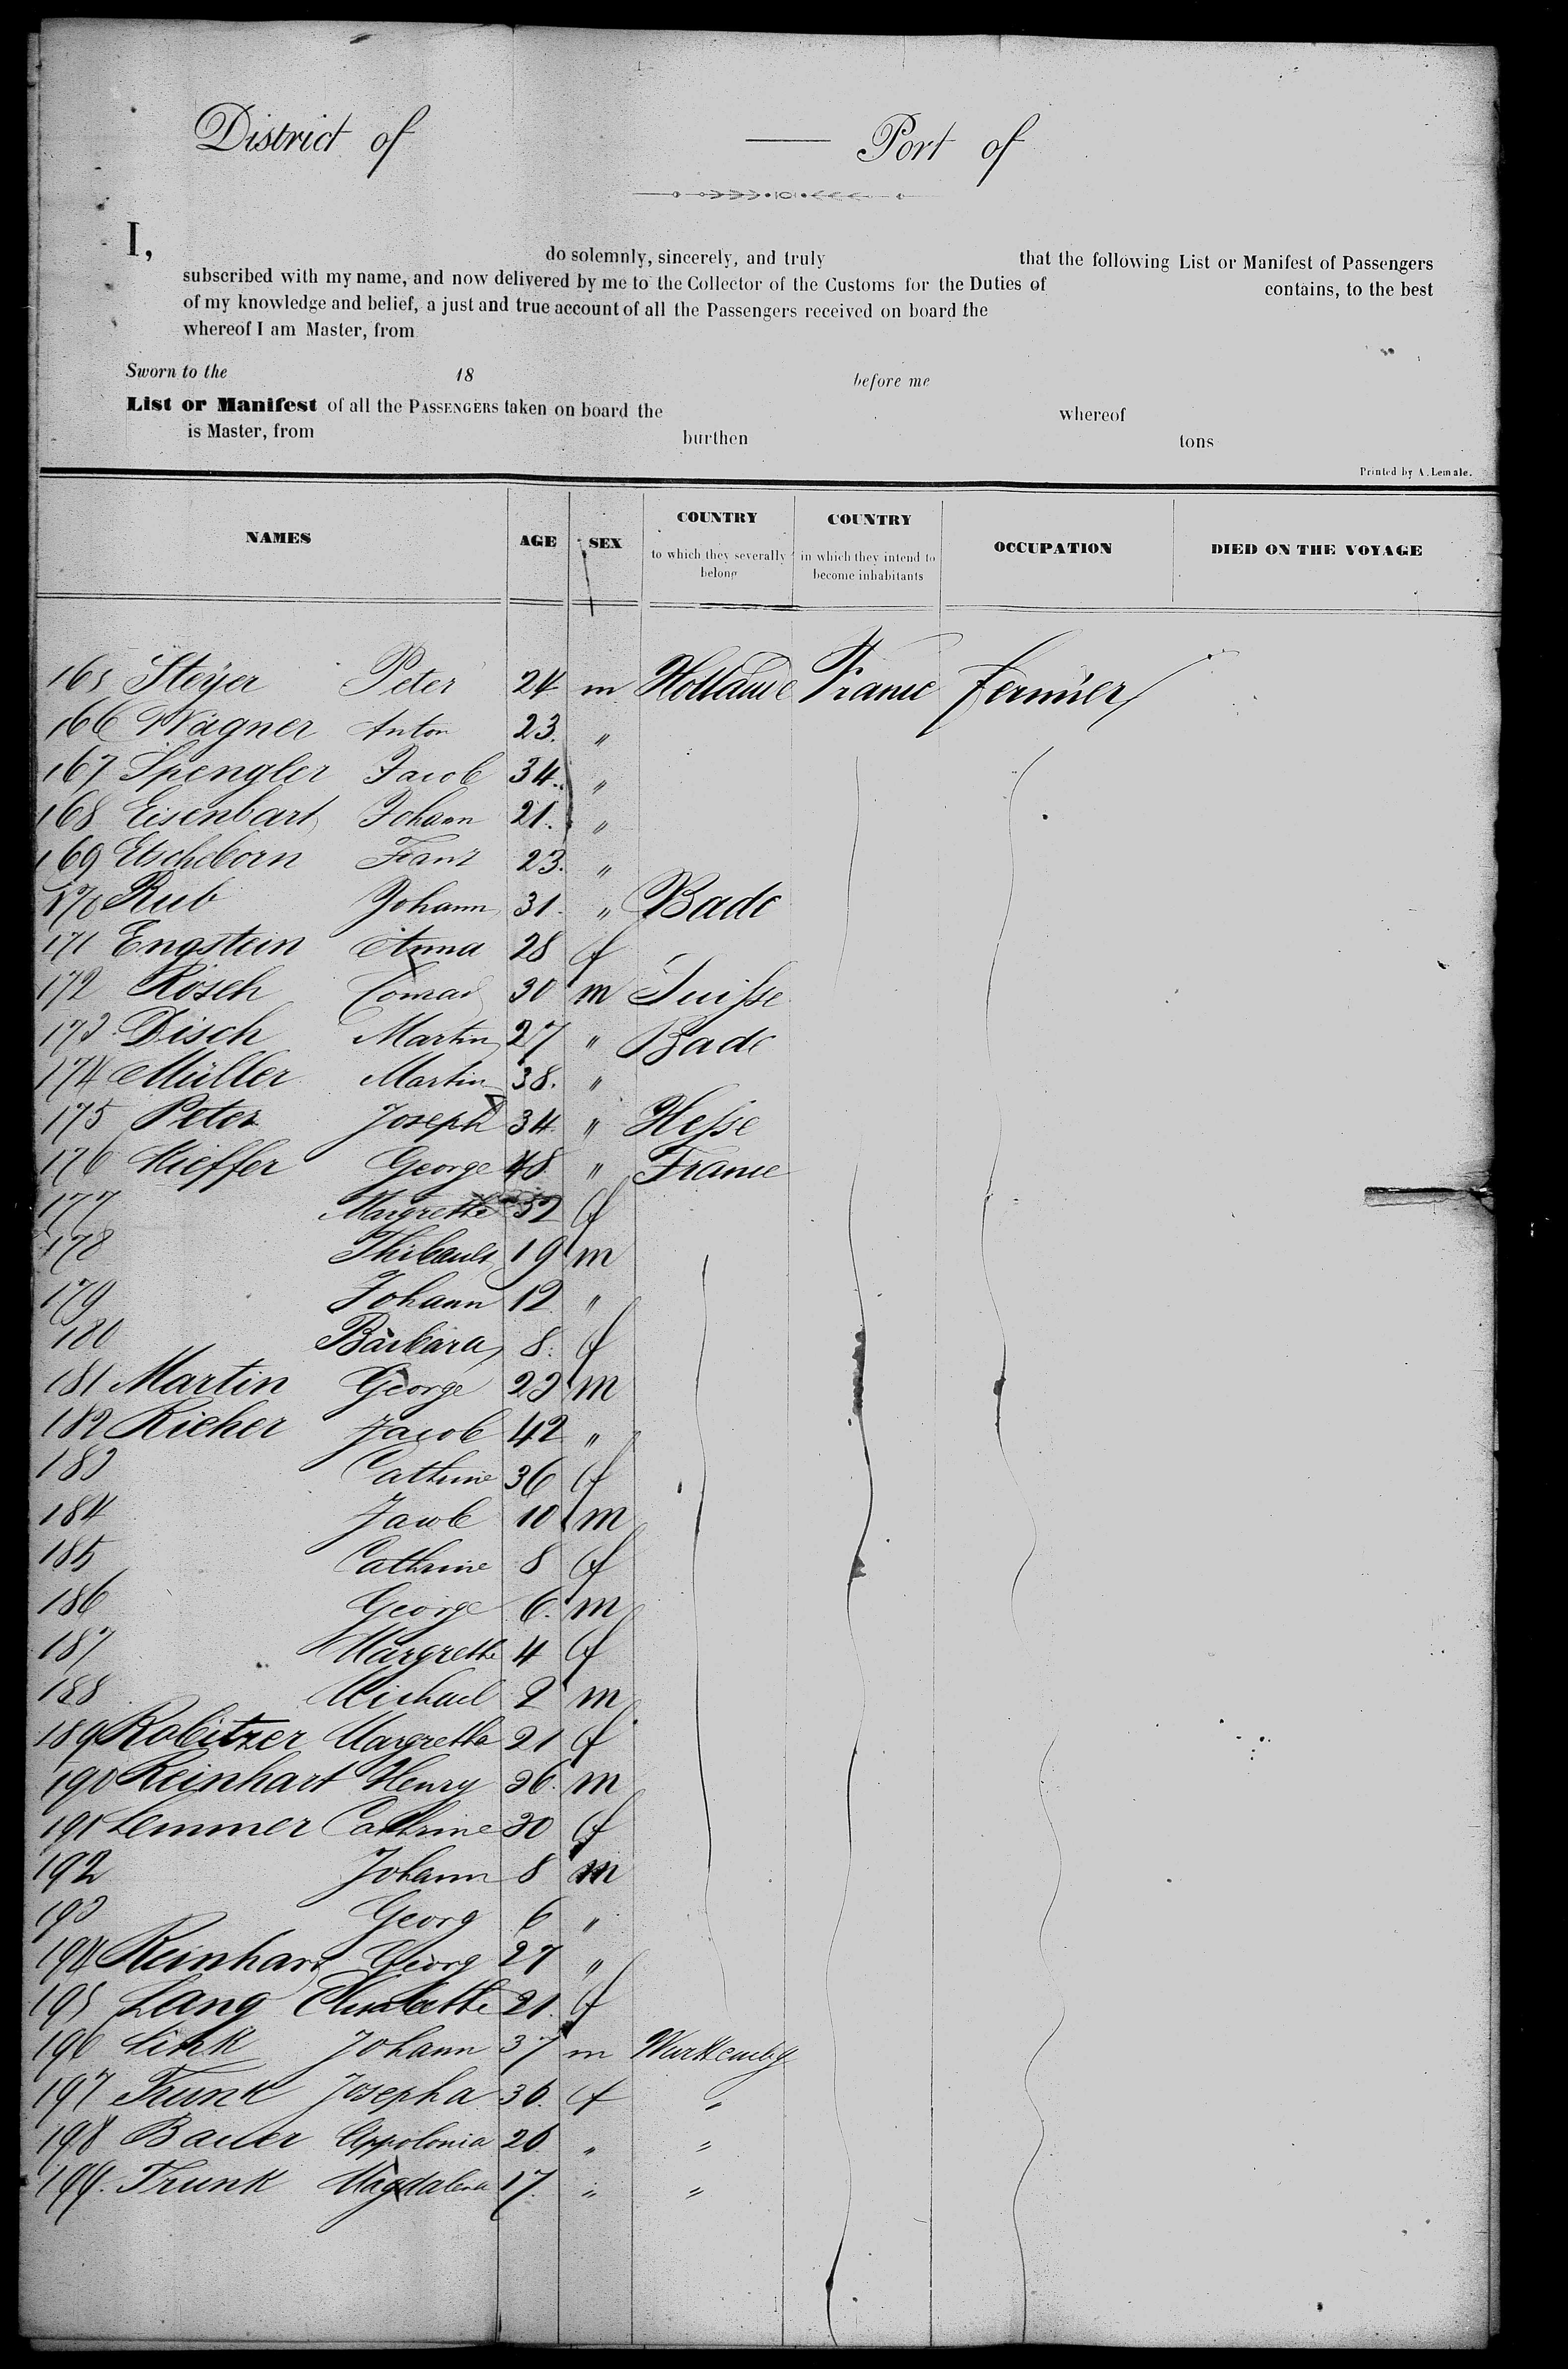 District of — Port of
I, do solemnly, sincerely, and truly that the following List or Manifest of Passengers
subscribed with my name, and now delivered by me to the Collector of the Customs for the Duties of contains, to the best
of my knowledge and belief, a just and true account of all the Passengers received on board the
whereof I am Master, from
Sworn to the 18 before me
List or Manifest of all the PASSENGERS taken on board the whereof
is Master, from burthen tons
Printed by A. Lemale.
NAMES AGE SEX COUNTRY to which they severally belong COUNTRY in which they intend to become inhabitants OCCUPATION DIED ON THE VOYAGE
165 Steyer Peter 24 m Hollande France fermier
166 Wagner Anton 23. "
167 Spengler Jacob 34. "
168 Eisenbart Johann 21. "
169 Etscheborn Franz 23. "
170 Rub Johann 31. " Bade
171 Engstein Anna 28 f
172 Rösch Conrad 30 m Suisse
173 Disch Martin 27 " Bade
174 Müller Martin 38. "
175 Peter Joseph 34 " Hesse
176 Kieffer George 48 " France
177 Margrethe 52 f
178 Thibault 19 m
179 Johann 12 "
180 Barbara 8. f
181 Martin George 23 m
182 Richer Jacob 42 "
183 Cathrine 36 f
184 Jacob 10 m
185 Cathrine 8 f
186 George 6. m
187 Margrethe 4 f
188 Michael 2 m
189 Robitzer Margretha 21 f
190 Reinhart Henry 26. m
191 Lemmer Cathrine 30 f
192 Johann 8 m
193 Georg 6 "
194 Reinhart Georg 27 "
195 Lang Elisabethe 21. f
196 Link Johann 37 m Wurttembg
197 Trunk Josepha 36. f "
198 Bauer Appolonia 26 " "
199. Trunk Magdalena 17. " "